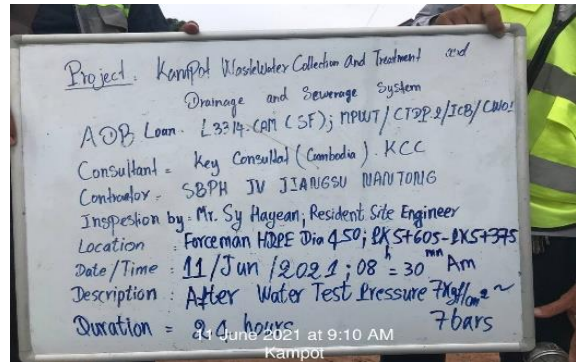 Project: Kampot Wastewater Collection And Treatment and
Drainage and Sewerage System
ADB Loan. L3314-CAM (SF); MPWT/CTDP.2/ICB/CW01
Consultant = Key Consultal (Cambodia). KCC
Contractor: SBPH JV JIANGSU NANTONG
Inspestion by: Mr. Sy Hayean; Resident Site Engineer
Location : Forceman HDPE Dia 450; PK5+605-PK5+375
Date/Time : 11/Jun/2021; 08h = 30mn Am
Description : After Water Test Pressure 7kgf/cm² ~
7bars
Duration = 24 hours
11 June 2021 at 9:10 AM
Kampot